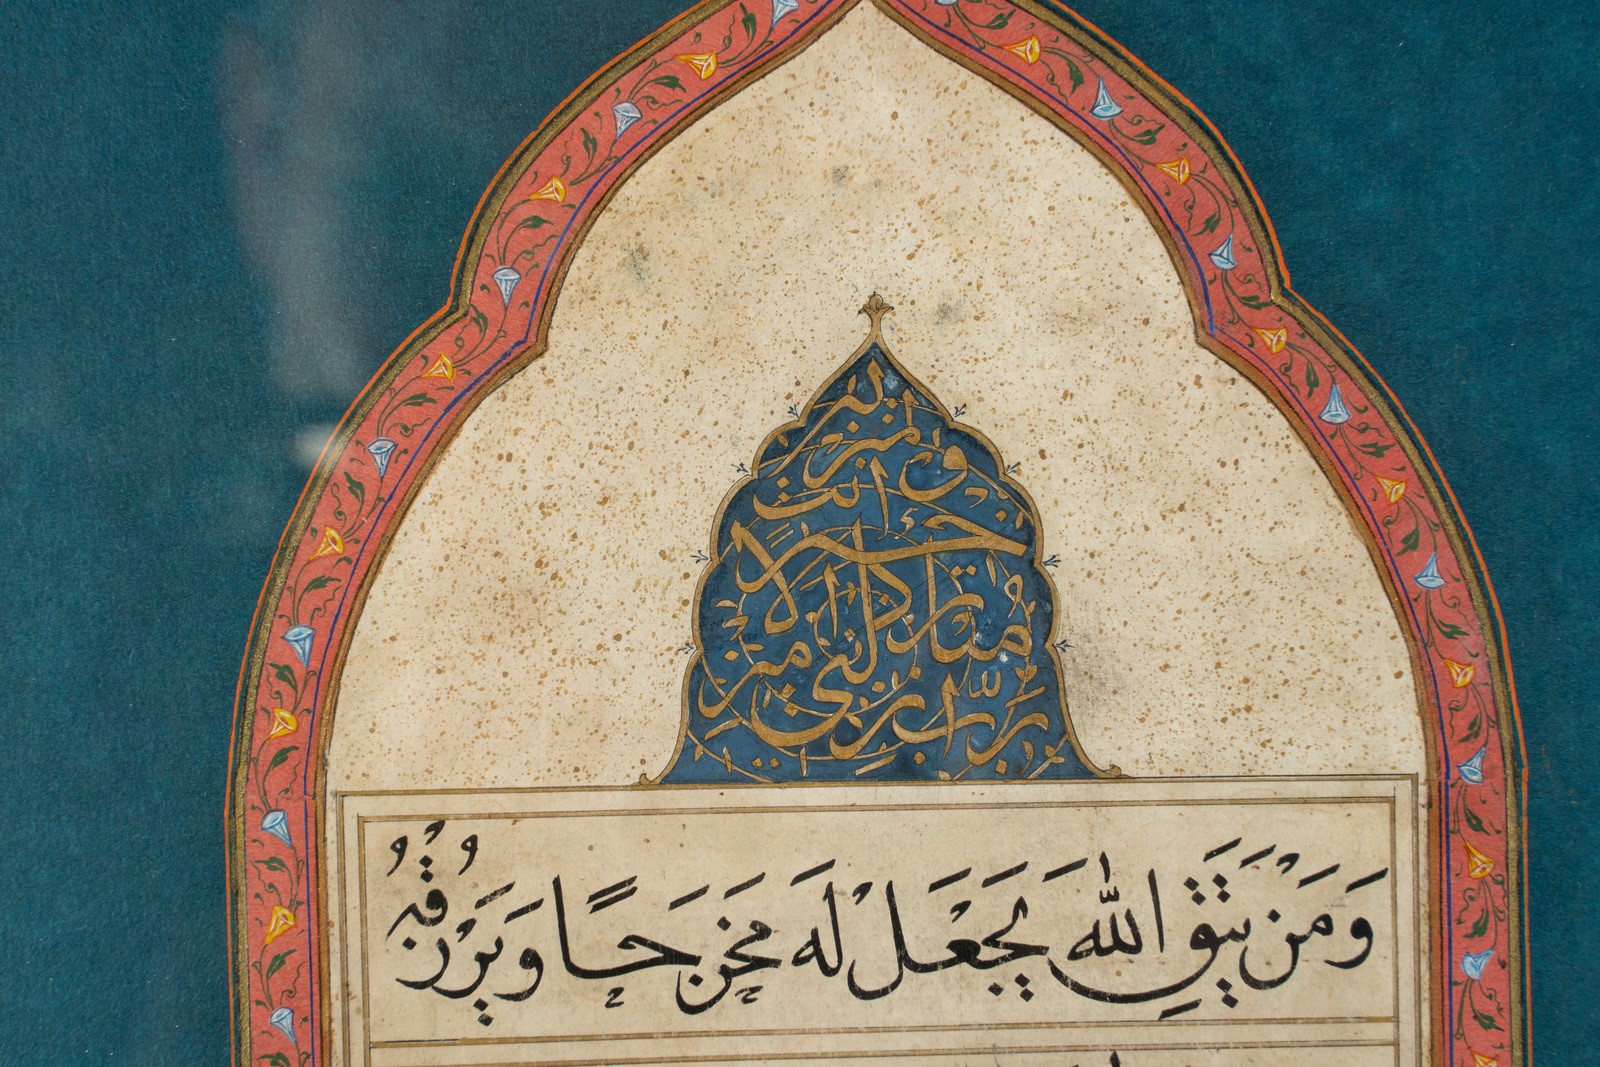 رب انزلنى منزلا مباركا وانت خير المنزلين
وَمَنْ يَتَّقِ اللَّهَ يَجْعَلْ لَهُ مَخْرَجًا وَيَرْزُقْهُ